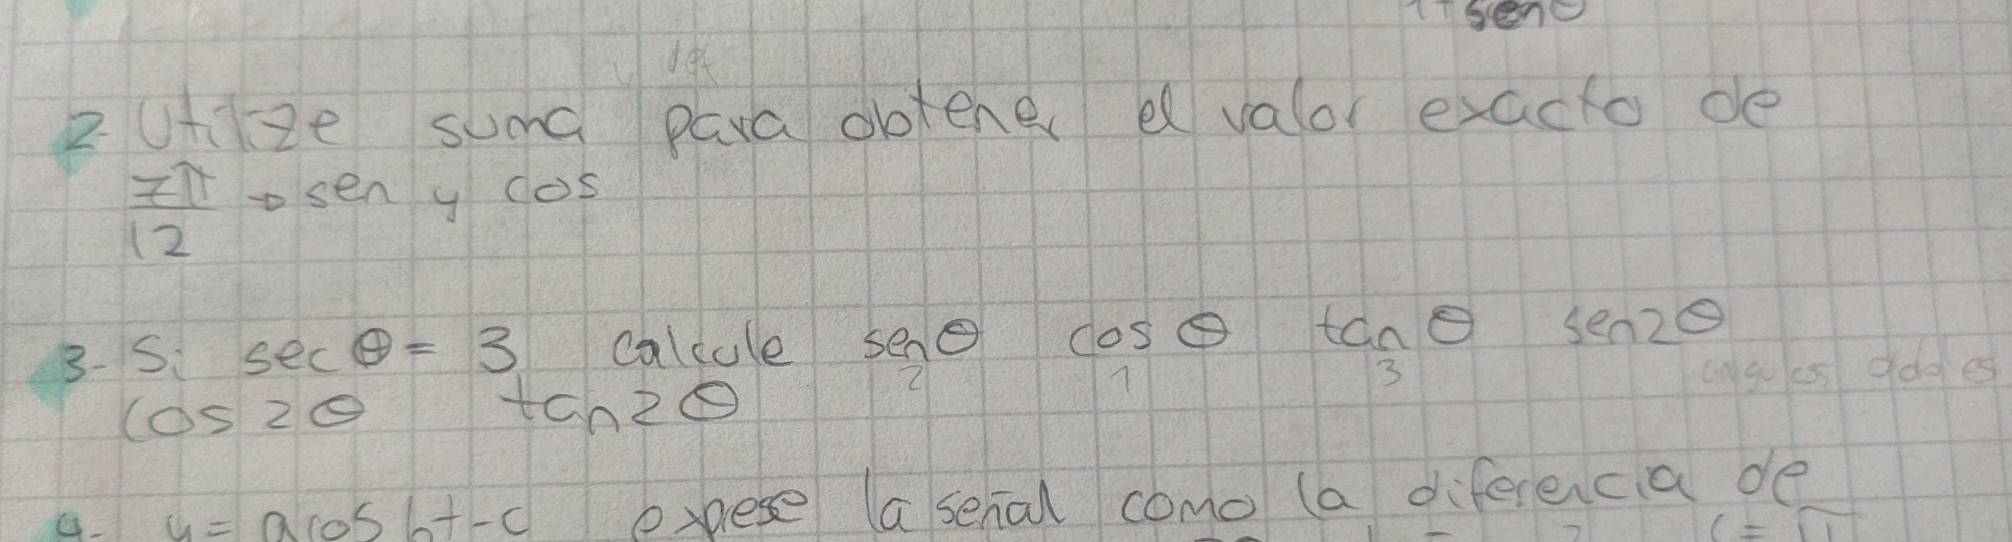 senθ
2. Utilize suma para obtener el valor exacto de
7π/12 → sen y cos
3- Si sec θ = 3 calcule senθ cos θ tan θ sen2θ
2 1 3
cos 2θ tan 2θ
4- y = a cos bt - c exprese la señal como la diferencia de